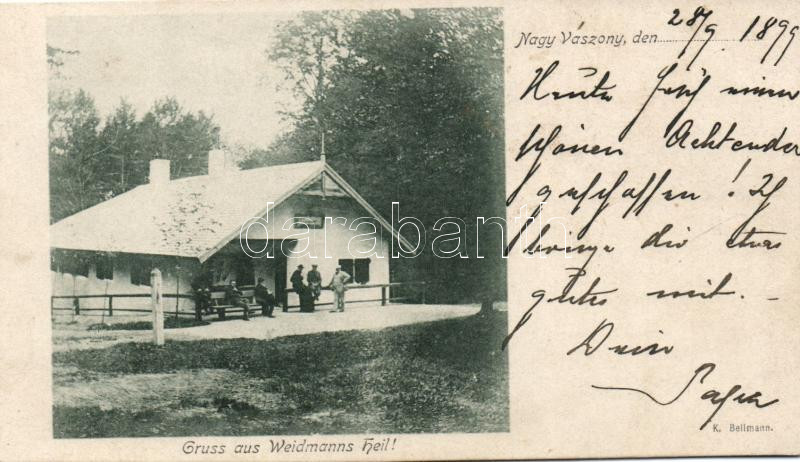 Nagy Vaszony, den 28/9 1899
Heute früh einen
schönen Achtender
geschossen! Ich
bringe dir etwas
gutes mit. -
Dein
K. Bellmann.
darabanth
Gruss aus Weidmanns Heil!